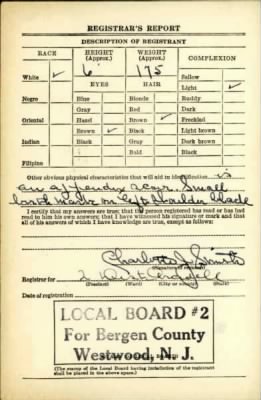 REGISTRAR'S REPORT
DESCRIPTION OF REGISTRANT
RACE HEIGHT (Approx.) WEIGHT (Approx.) COMPLEXION
White ✓ 6' 175 Sallow
Light ✓
EYES HAIR
Negro Blue Blonde Ruddy
Gray Red Dark
Oriental Hazel Brown ✓ Freckled
Brown ✓ Black Light brown
Indian Black Gray Dark brown
Bald Black
Filipino
Other obvious physical characteristics that will aid in identification is
an appendix scar. Small
birth mark on left shoulder blade
I certify that my answers are true; that the person registered has read or has had
read to him his own answers; that I have witnessed his signature or mark and that
all of his answers of which I have knowledge are true, except as follows:
Charlotte
(Signature of registrar)
Registrar for
(Precinct) (Ward) (City or county) (State)
Date of registration
LOCAL BOARD #2
For Bergen County
Westwood, N. J.
(The stamp of the Local Board having jurisdiction of the registrant
shall be placed in the above space.)